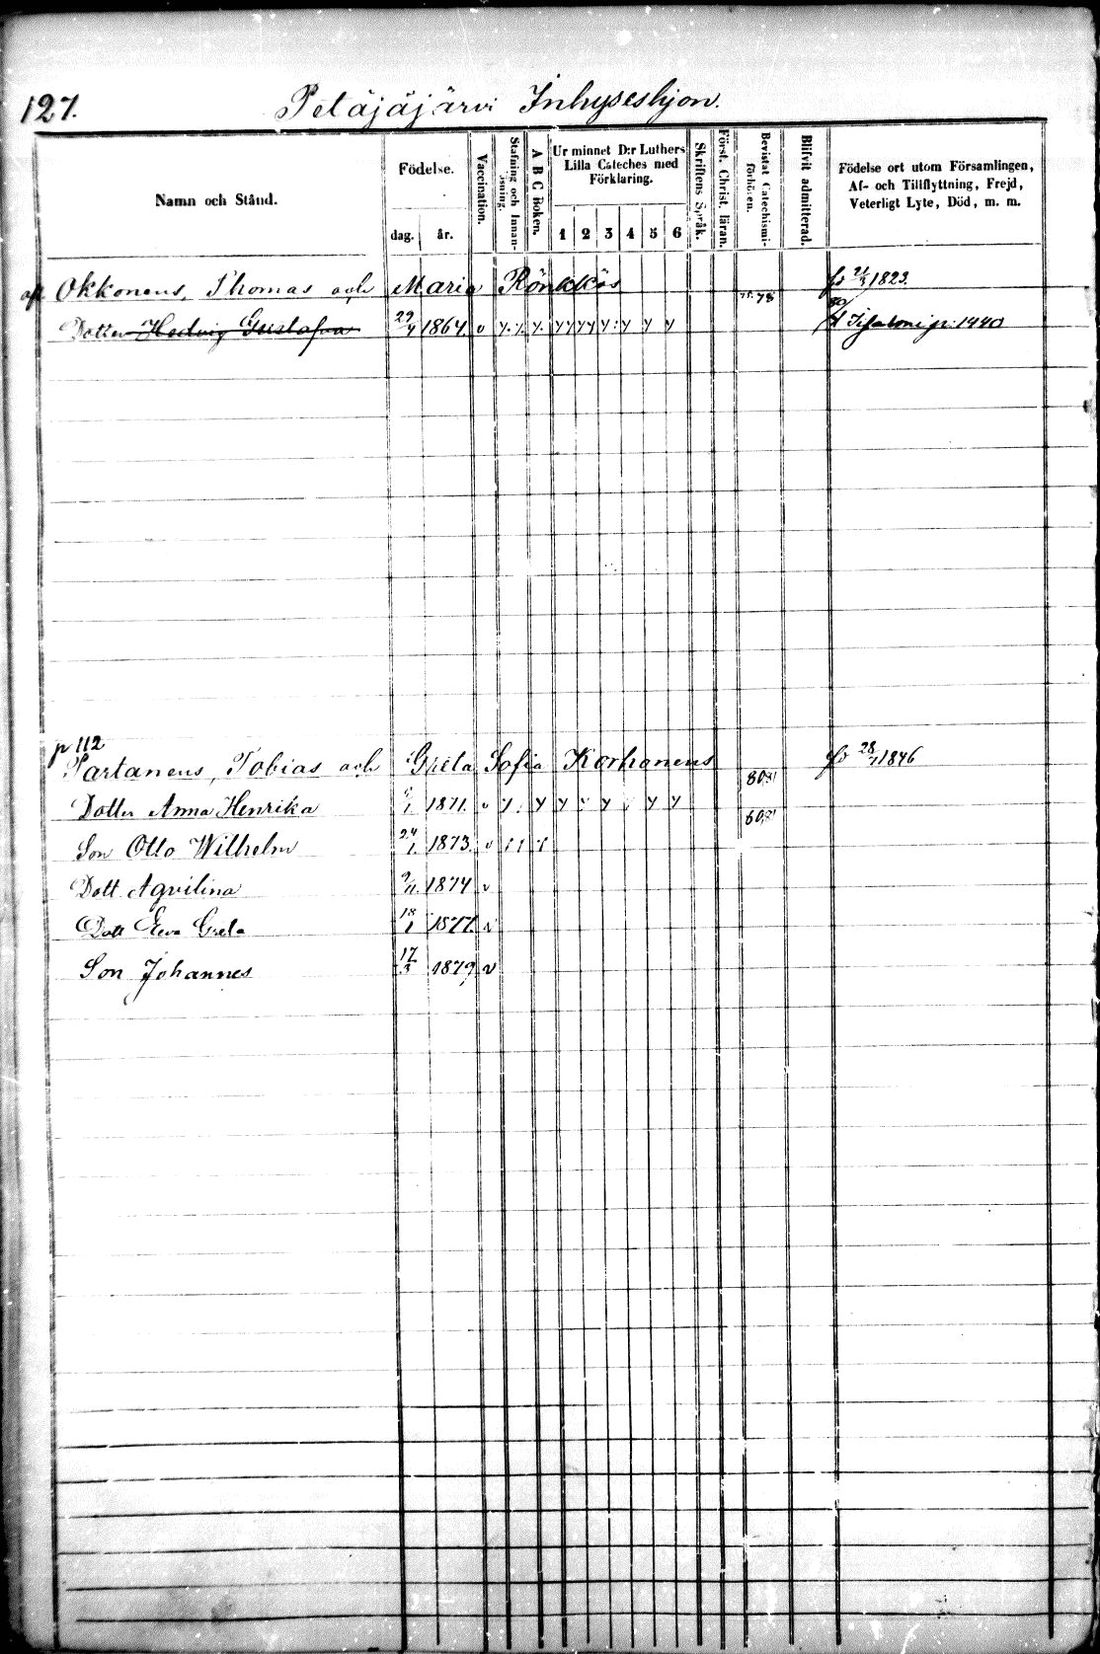 127. Petäjäjärvi Inhyseshjon.
Namn och Stånd.
Födelse.
dag. år.
Vaccination.
Stafning och Innanläsning.
A B C Boken.
Ur minnet D:r Luthers
Lilla Cateches med
Förklaring.
1 2 3 4 5 6
Skriftens Språk.
Först. Christ. läran.
Bevistat Catechismi-
förhören.
Blifvit admitterad.
Födelse ort utom Församlingen,
Af- och Tillflyttning, Frejd,
Veterligt Lyte, Död, m. m.
Okkonens, Thomas och Maria Rönkkös 1823.
Dotter Hedvig Gustafva 29/4 1864. v
p 112
Partanens, Tobias och Greta Sofia Korhonens 28/1 1846
Dotter Anna Henrika 1871. v 80,81
Son Otto Wilhelm 24/1. 1873. v 80,81
Dott Agvilina 9/11. 1874 v
Dott Eva Greta 18/1 1877. v
Son Johannes 17/3 1879 v